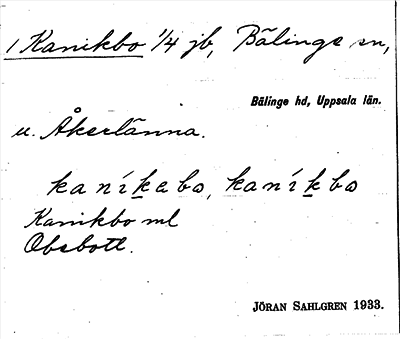 1 Kanikbo 1/4 jb, Bälinge sn,
Bälinge hd, Uppsala län.
u. Åkerlänna.
kaníkabo, kaníkbo
Kanikbo ml
Obebott.
JÖRAN SAHLGREN 1933.